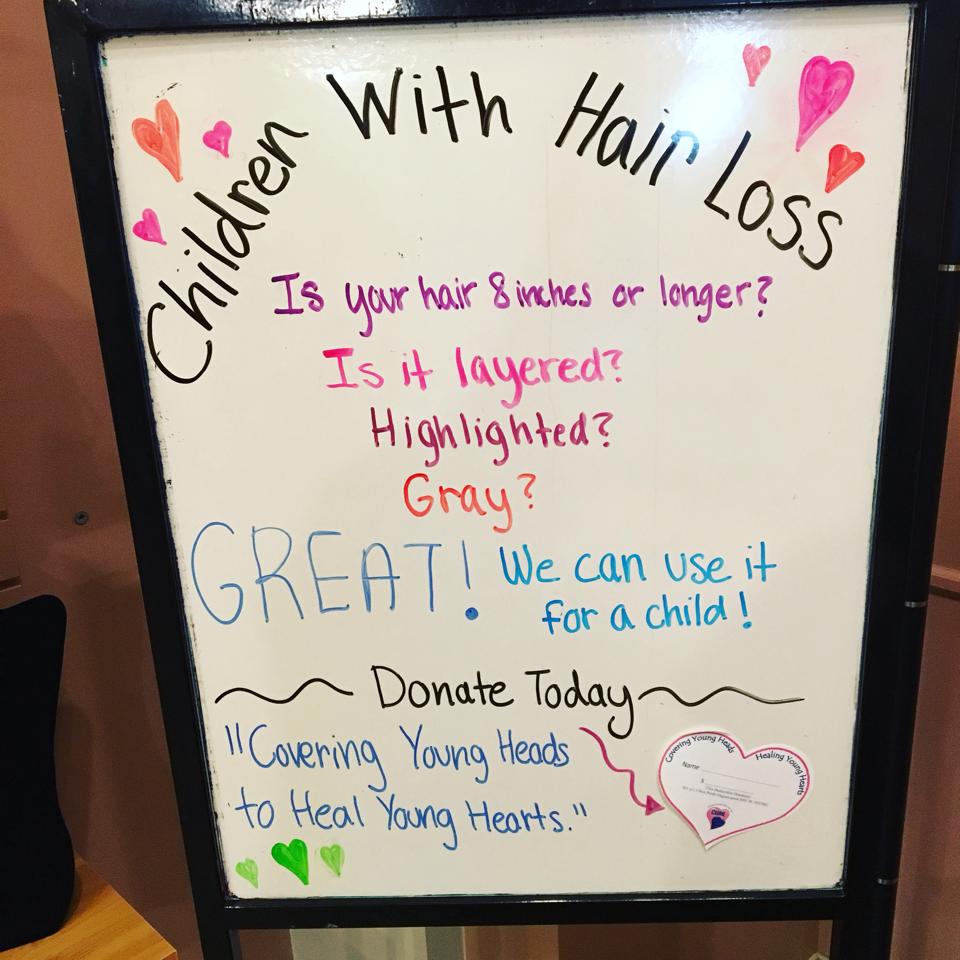 Children With Hair Loss
Is your hair 8 inches or longer?
Is it layered?
Highlighted?
Gray?
GREAT! We can use it
for a child!
Donate Today
"Covering Young Heads
to Heal Young Hearts."
Covering Young Heads Healing Young Hearts
Name
$